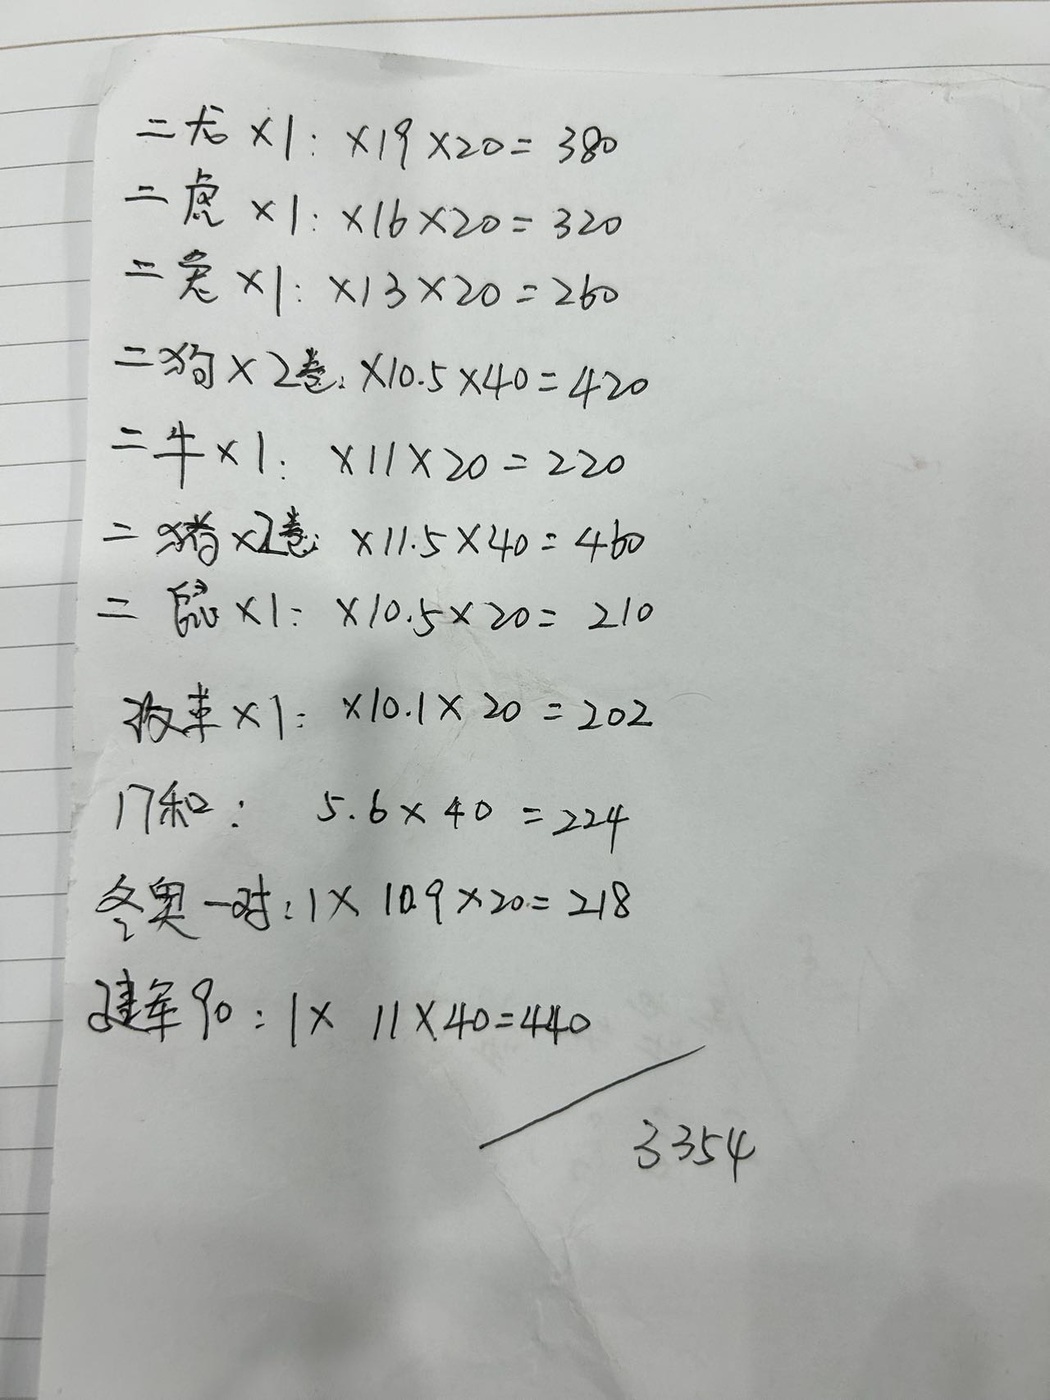 二龙×1: ×19×20=380
二虎×1: ×16×20=320
二兔×1: ×13×20=260
二狗×2卷: ×10.5×40=420
二牛×1: ×11×20=220
二猪×2卷: ×11.5×40=460
二鼠×1: ×10.5×20=210
改革×1: ×10.1×20=202
17和: 5.6×40=224
冬奥一对: 1×10.9×20=218
建军90: 1×11×40=440
3354